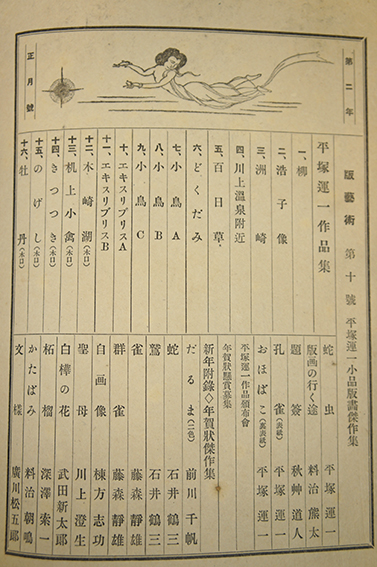 第二年
正月號
版藝術 第十號 平塚運一小品版畫傑作集
平塚運一作品集
一、柳
二、浩子像
三、洲崎
四、川上溫泉附近
五、百日草
六、どくだみ
七、小鳥 A
八、小鳥 B
九、小鳥 C
十、エキスリブリスA
十一、エキスリブリスB
十二、木崎湖(木口)
十三、机上小禽(木口)
十四、きつつき(木口)
十五、のげし(木口)
十六、牡丹(木口)
蛇虫 平塚運一
版画の行く途 料治熊太
題簽 秋艸道人
孔雀(表表紙) 平塚運一
おほばこ(裏表紙) 平塚運一
平塚運一作品頒布會
年賀狀懸賞募集
新年附錄◇年賀狀傑作集
だるま(二色) 前川千帆
蛇 石井鶴三
鷲 石井鶴三
雀 藤森靜雄
群雀 藤森靜雄
自画像 棟方志功
聖母 川上澄生
白樺の花 武田新太郎
柘榴 深澤索一
かたばみ 料治朝鳴
文樣 廣川松五郎